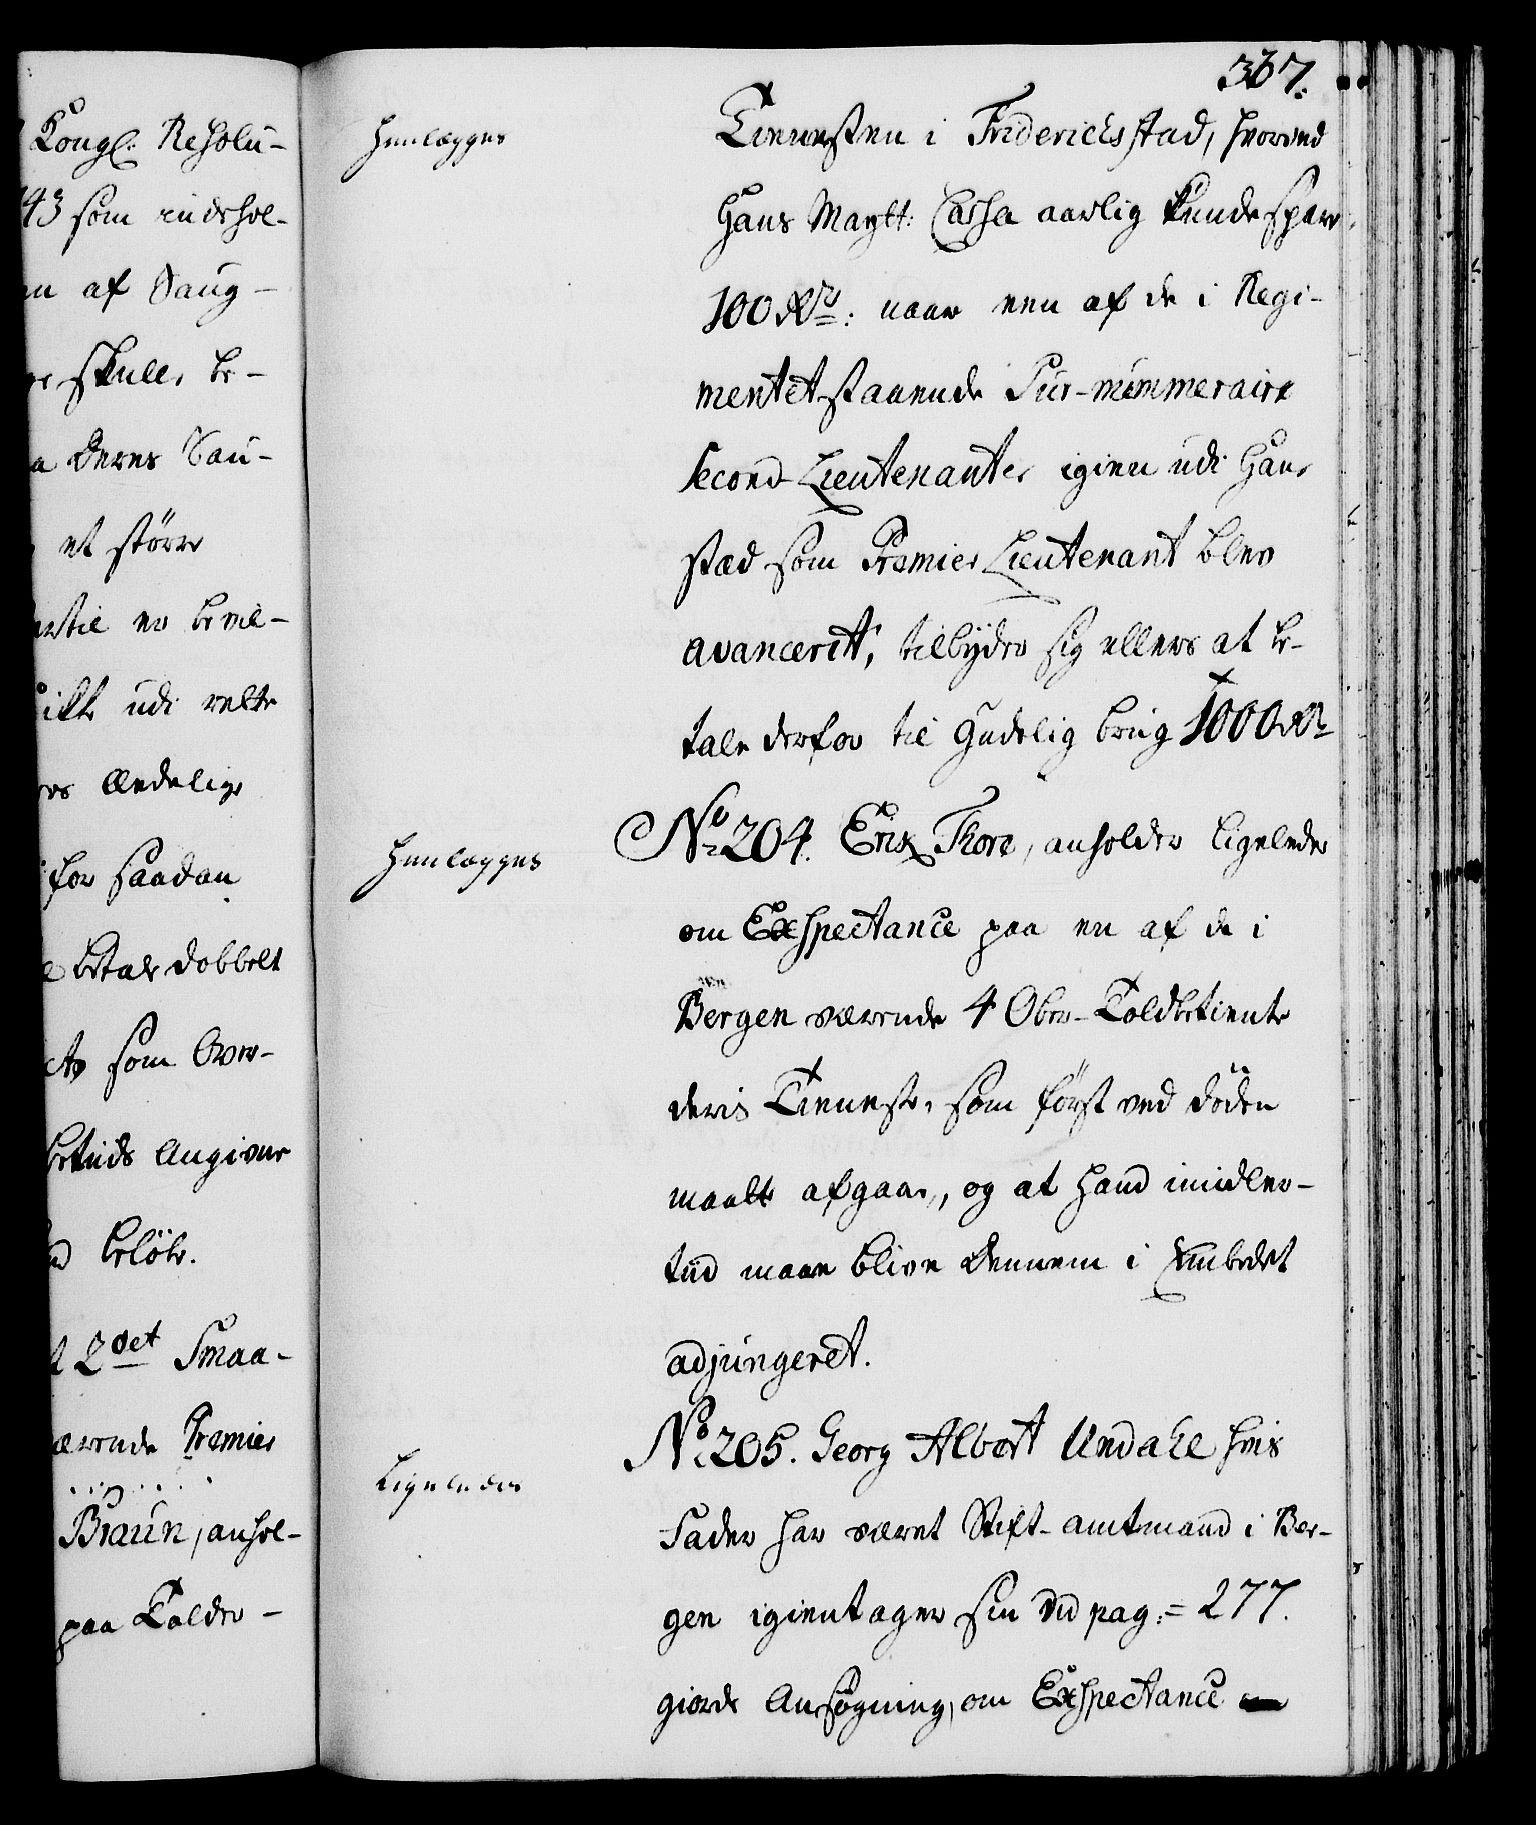 Kongl: Resolu-
43 som indehol-
af Saug-
skulle be-
Deres Sau-
et större
er bevil-
udi rette
Ædelige
for saadan
betale dobbelt
som Over-
betids Angiver
belöb.
2det Smaa-
værende Premier
Braun, anhol-
paa Tolder-
367.
Henlægges
Tienesten i Friderichsstad, hvorved
Hans Maytt: Cassa aarlig kunde spare
100 Rdr: naar een af de i Regi-
mentet staaende Sur-nummeraire
Second Lieutenanter igien udi Hans
stæd som Premier Lieutenant blev
avancerit, tilbyder sig ellers at be-
tale derfor til Gudelig brug 1000 Rdr
Henlægges
No 204. Erik Thore, anholder ligeledes
om Exspectance paa en af de i
Bergen værende 4 Over-Toldbetiente
deris Tieneste, som först ved döden
maatte afgaae, og at hand imidler-
tiid maae blive Dennem i Embedet
adjungeret.
Ligeledes
No 205. Georg Albert Undahl hvis
Fader har været Stift-amtmand i Ber-
gen igientager sin ved pag: 277.
giorde Ansøgning, om Exspectance